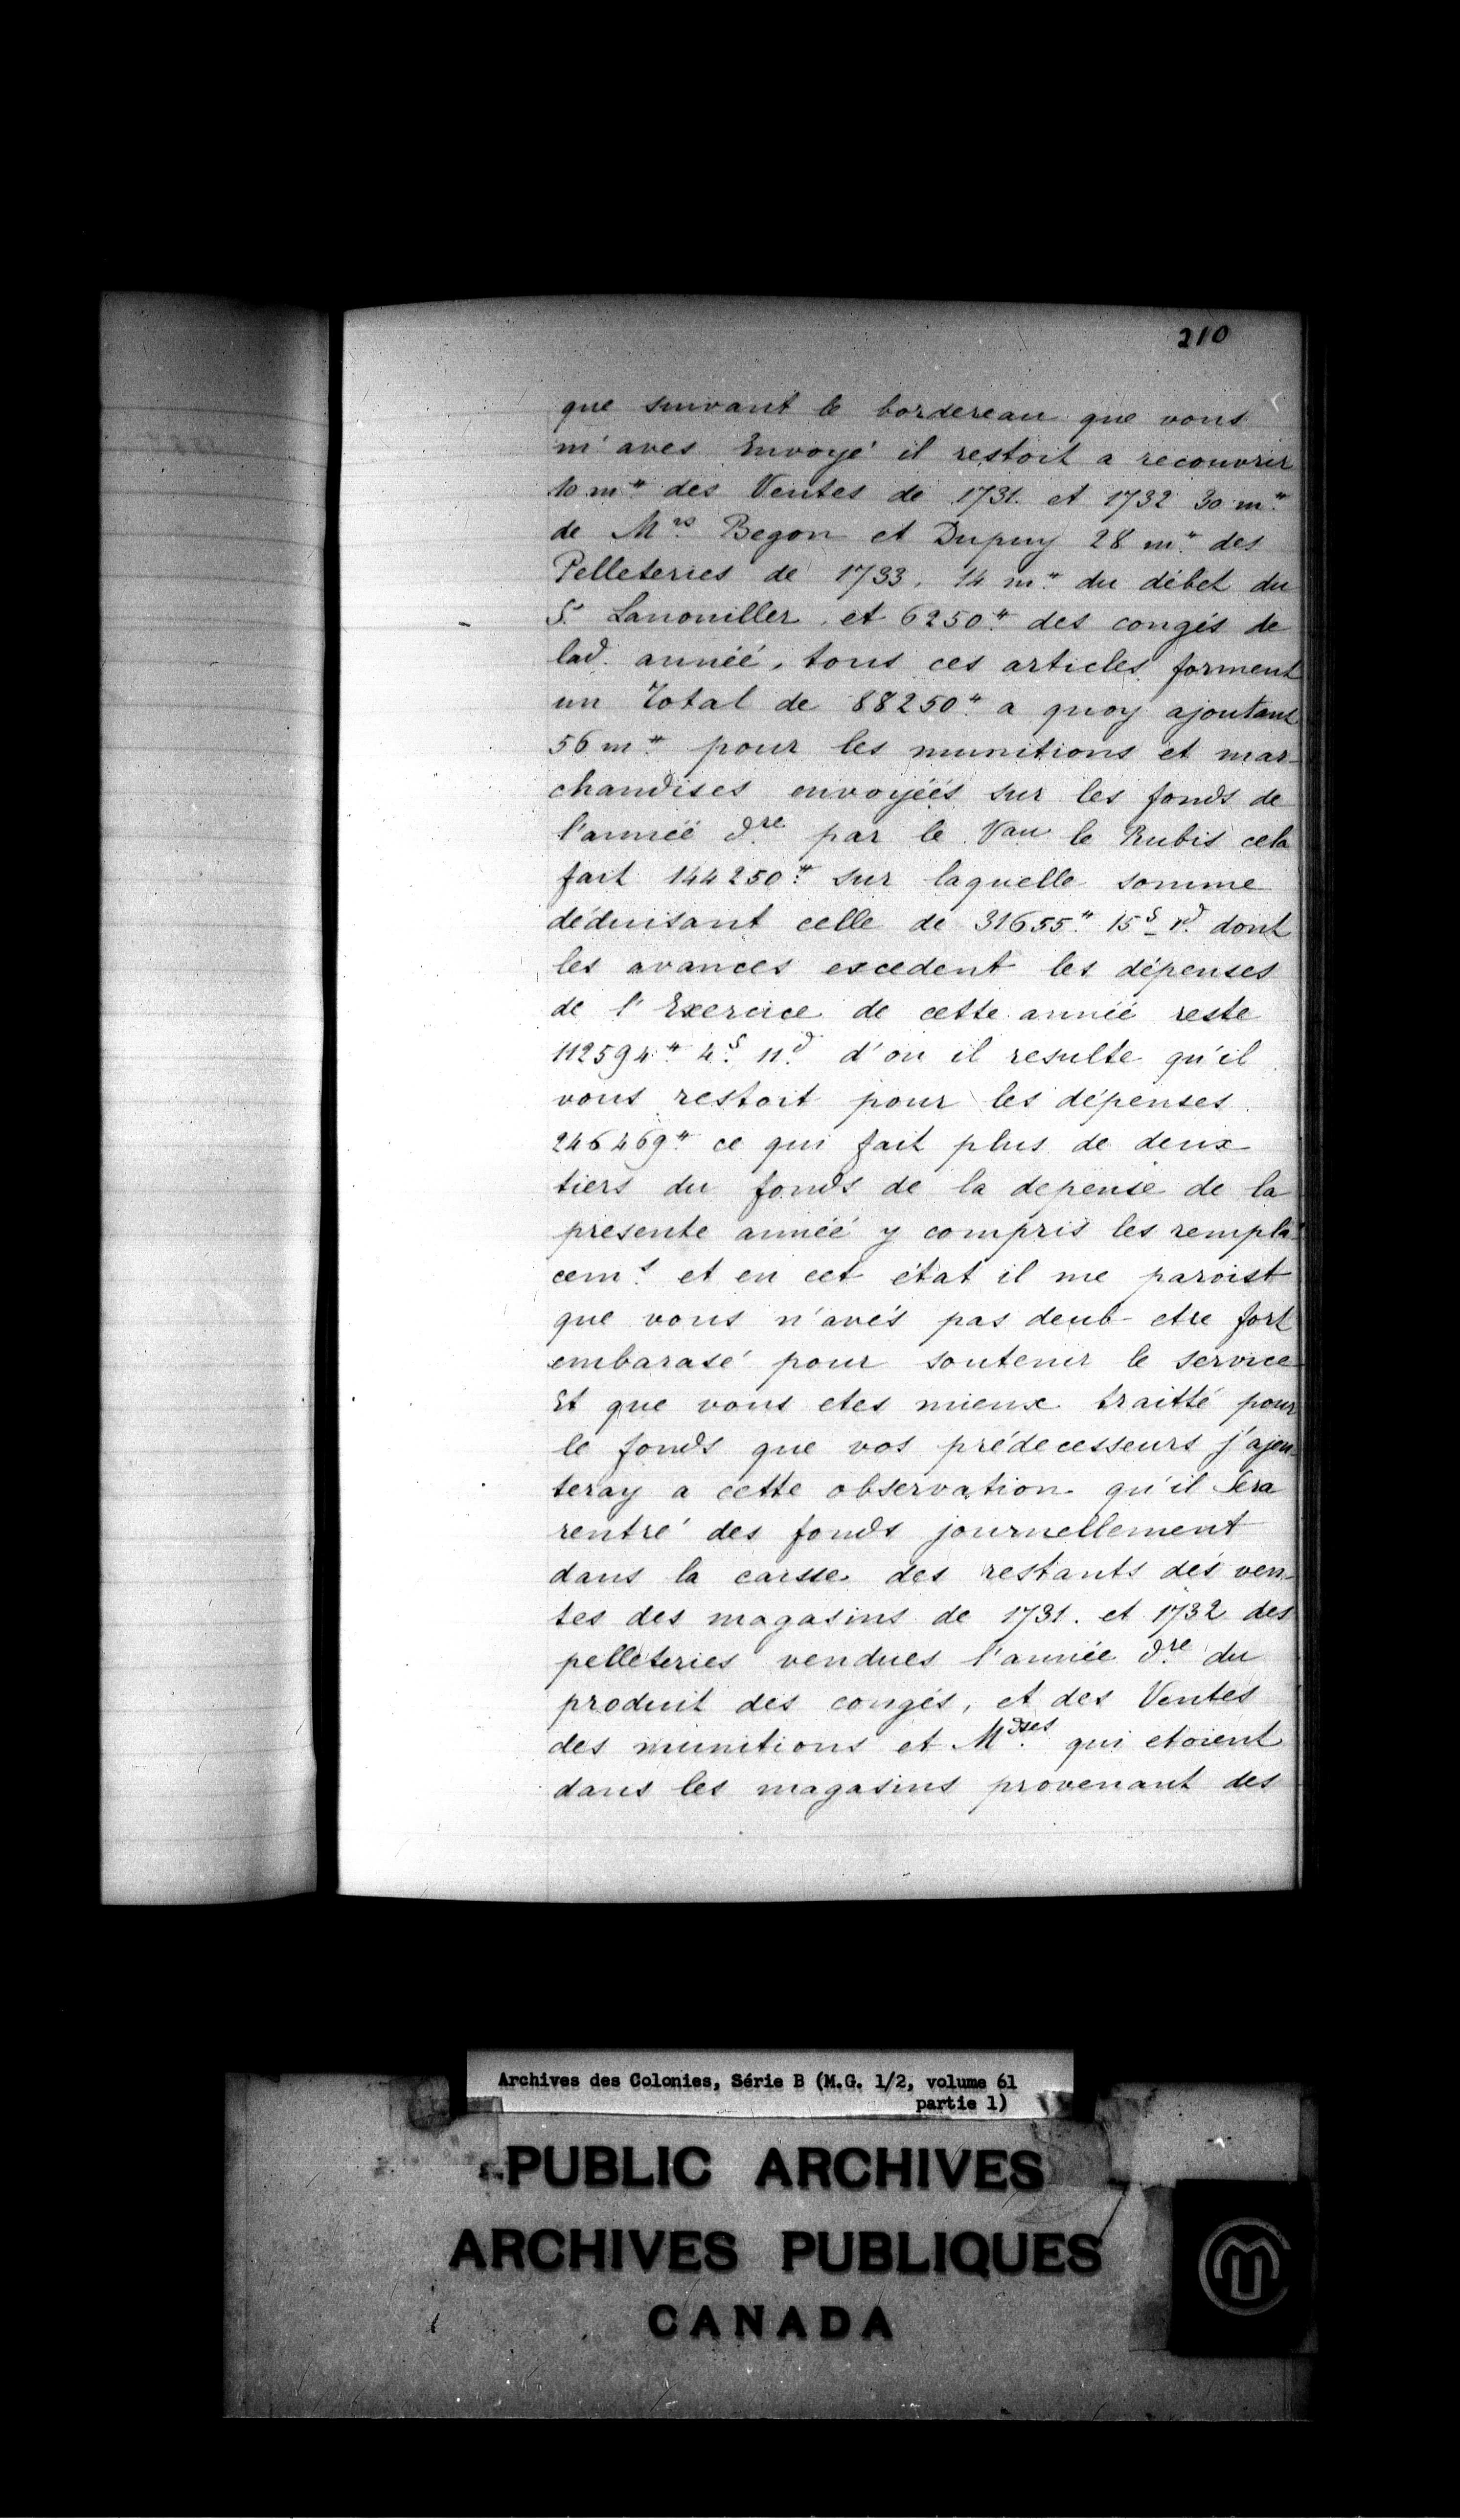 210
que suivant le bordereau que vous
m'aves Envoyé il restoit a recouvrir
10 m# des Ventes de 1731. et 1732 30 m#
de Mrs Begon et Dupuy 28 m# des
Pelleteries de 1733. 14 m# du débet du
Sr Lanouiller et 6250# des congés de
lad. année, tous ces articles forment
un Total de 88250# a quoy ajoutant
56 m# pour les munitions et mar-
chandises envoyéés sur les fonds de
l'année dre par le Vau le Rubis cela
fait 144250# sur laquelle somme
déduisant celle de 31655# 15s 1d dont
les avances excedent les dépenses
de l'Exercice de cette année reste
112594# 4s 11d d'ou il resulte qu'il
vous restoit pour les dépenses
246469# ce qui fait plus de deux
tiers du fonds de la depense de la
presente année y compris les rempla-
cemts et en cet état il me paroist
que vous n'avés pas deub etre fort
embarasé pour soutenir le service
Et que vous etes mieux traitté pour
le fonds que vos prédecesseurs j'ajou-
teray a cette observation qu'il Sera
rentré des fonds journellement
dans la caisse des restants des ven-
tes des magasins de 1731. et 1732 des
pelleteries vendues l'année dre du
produit des congés, et des Ventes
des munitions et Mdses qui etoient
dans les magasins provenant des
Archives des Colonies, Série B (M.G. 1/2, volume 61
partie 1)
PUBLIC ARCHIVES
ARCHIVES PUBLIQUES
CANADA